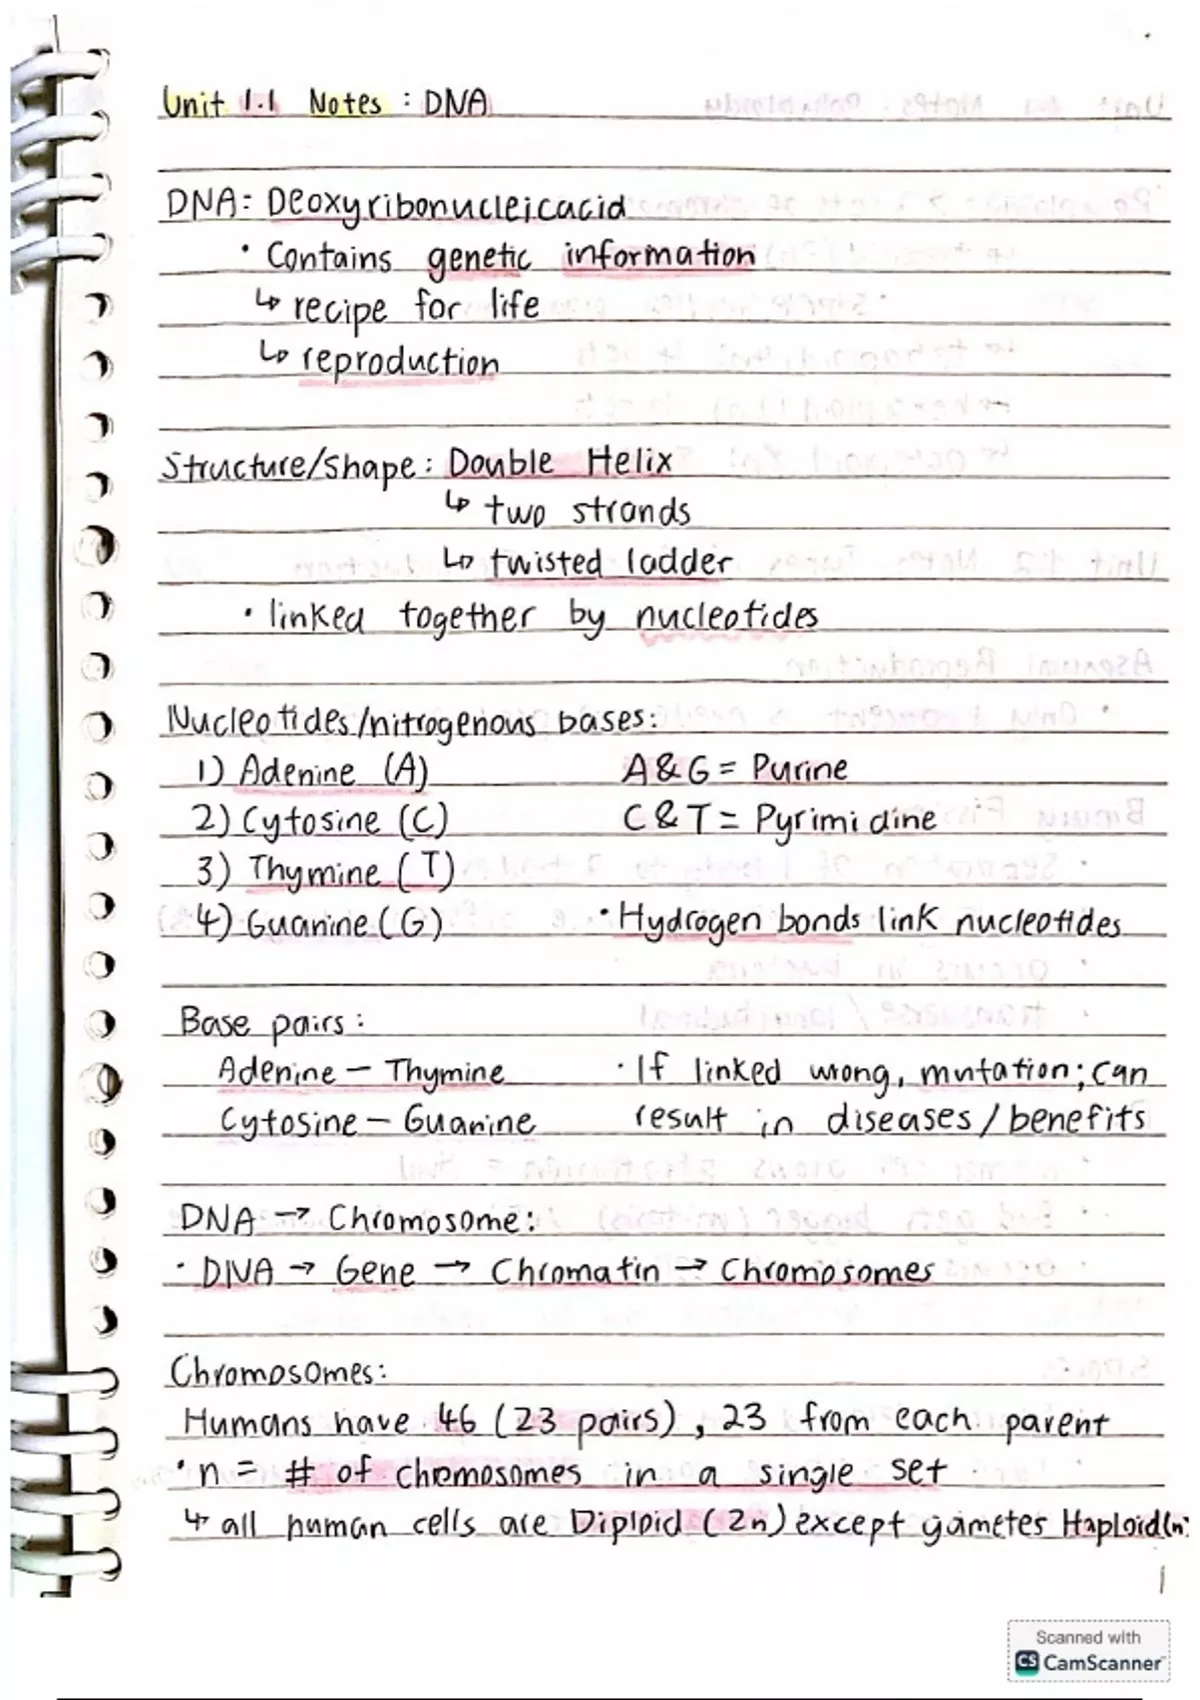 Unit 1.1 Notes : DNA
DNA: Deoxyribonucleicacid
• Contains genetic information
↳ recipe for life
↳ reproduction
Structure/shape: Double Helix
↳ two strands
↳ twisted ladder
• linked together by nucleotides
Nucleotides/nitrogenous bases:
1) Adenine (A) A & G = Purine
2) Cytosine (C) C & T = Pyrimidine
3) Thymine (T)
4) Guanine (G) • Hydrogen bonds link nucleotides
Base pairs:
Adenine – Thymine • If linked wrong, mutation; can
Cytosine – Guanine result in diseases / benefits
DNA → Chromosome:
• DNA → Gene → Chromatin → Chromosomes
Chromosomes:
Humans have 46 (23 pairs), 23 from each parent
• n = # of chromosomes in a single set
↳ all human cells are Diploid (2n) except gametes Haploid(n)
1
Scanned with
CS CamScanner